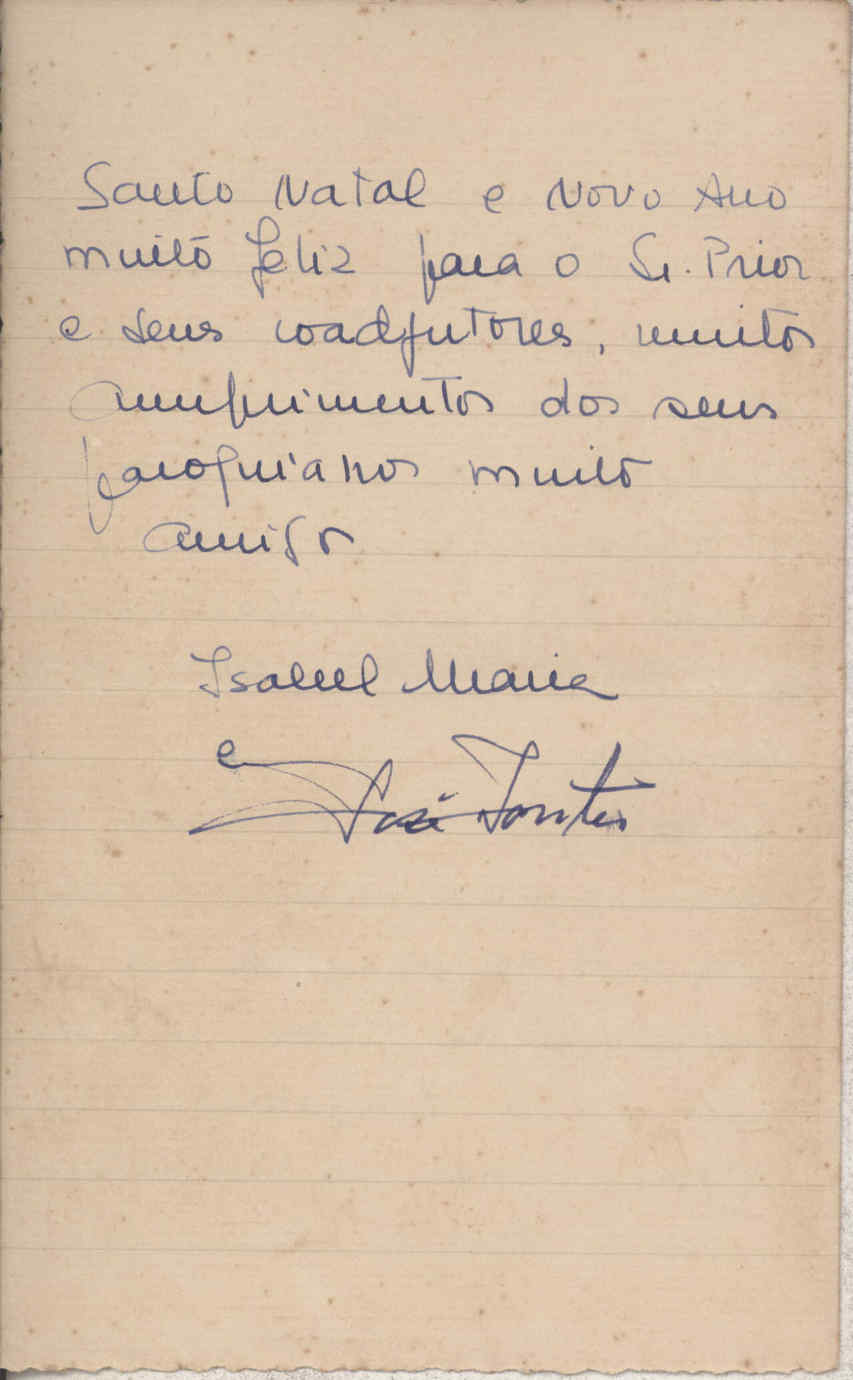 Santo Natal e Novo Ano
muito feliz para o Sr. Prior
e seus coadjutores, muitos
cumprimentos dos seus
paroquianos muito
amigos
Isabel Maria
e
José Fontes